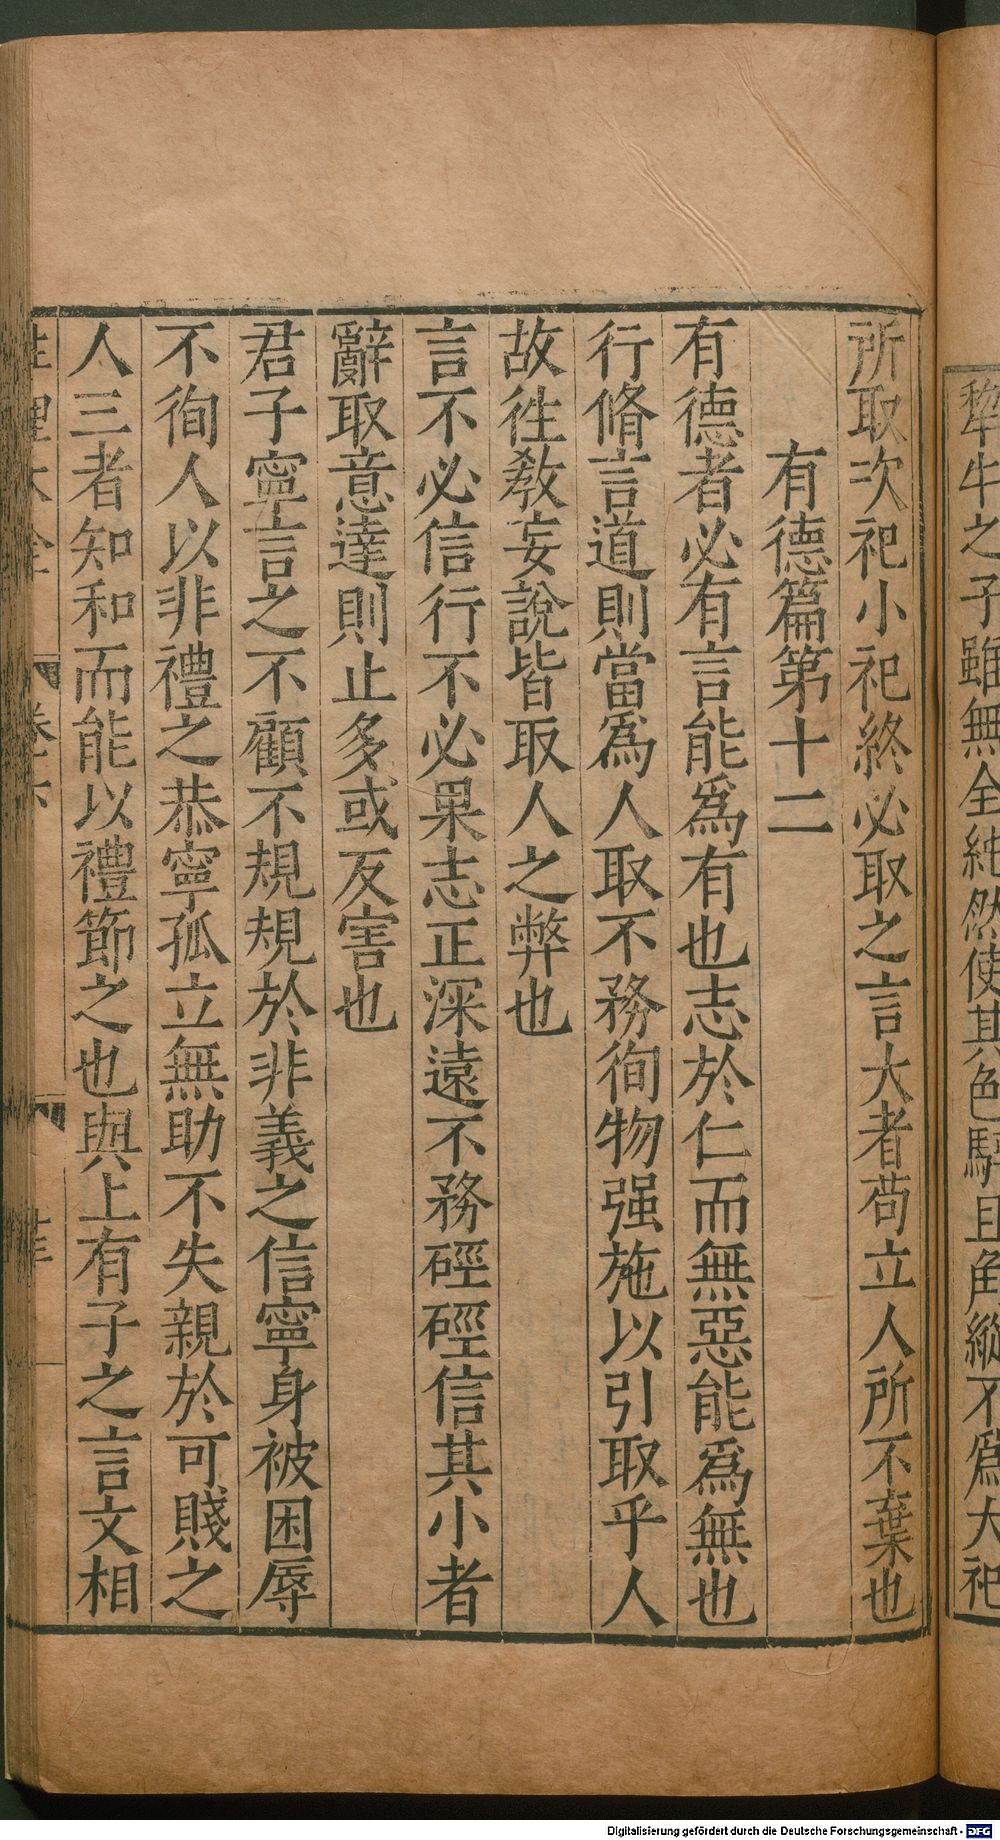 犂牛之子雖無全純然使其色騂且角縱不爲大祀
所取次祀小祀終必取之言大者苟立人所不棄也
有德篇第十二
有德者必有言能爲有也志於仁而無惡能爲無也
行脩言道則當爲人取不務徇物强施以引取乎人
故徃教妄說皆取人之弊也
言不必信行不必果志正深遠不務硜硜信其小者
辭取意達則止多或反害也
君子寧言之不顧不規規於非義之信寧身被困辱
不徇人以非禮之恭寧孤立無助不失親於可賤之
人三者知和而能以禮節之也與上有子之言文相
性理大全
卷六
Digitalisierung gefördert durch die Deutsche Forschungsgemeinschaft - DFG